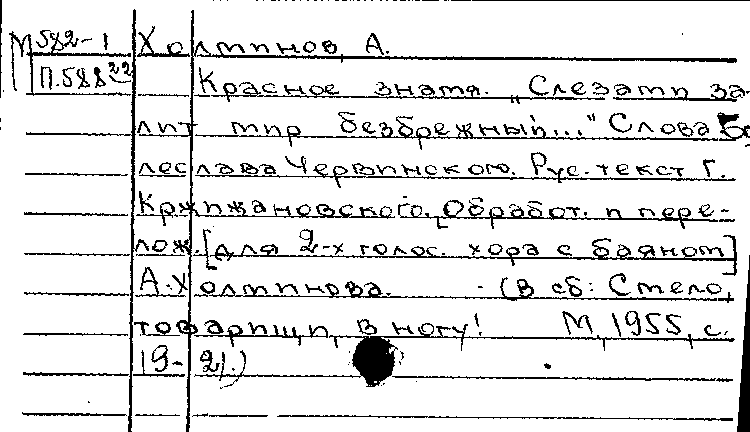 М 582-1 Холминов, А.
П.588²²
Красное знамя. „Слезами за-
лит мир безбрежный..." Слова Бо
леслава Червинского. Рус. текст Г.
Кржижановского. [Обработ. и пере-
лож. [для 2-х голос. хора с баяном]
А. Холминова. - (В сб: Смело,
товарищи, в ногу! М, 1955, с.
19-21.)